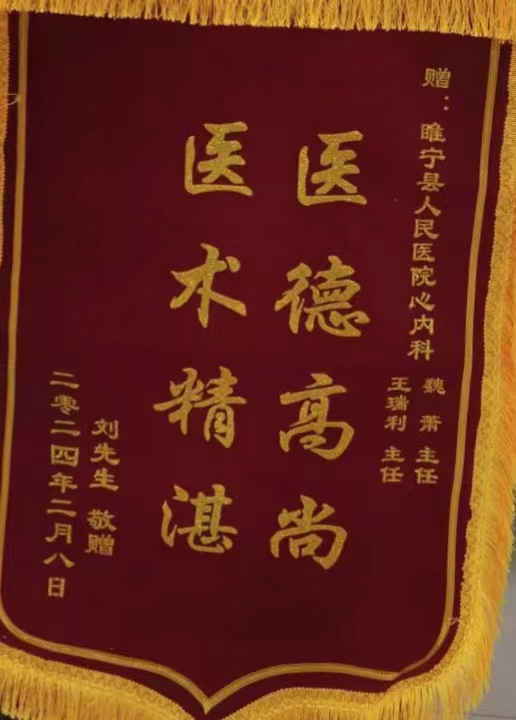 赠：睢宁县人民医院心内科
魏萧主任
王瑞利主任
医德高尚
医术精湛
刘先生 敬赠
二零二四年二月八日